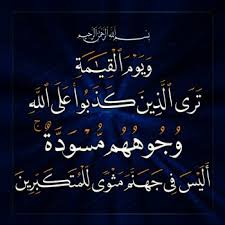 بسم الله الرحمن الرحيم
وَيَوْمَ الْقِيَامَةِ
تَرَى الَّذِينَ كَذَبُوا عَلَى اللَّهِ
وُجُوهُهُم مُّسْوَدَّةٌ ۚ
أَلَيْسَ فِي جَهَنَّمَ مَثْوًى لِّلْمُتَكَبِّرِينَ